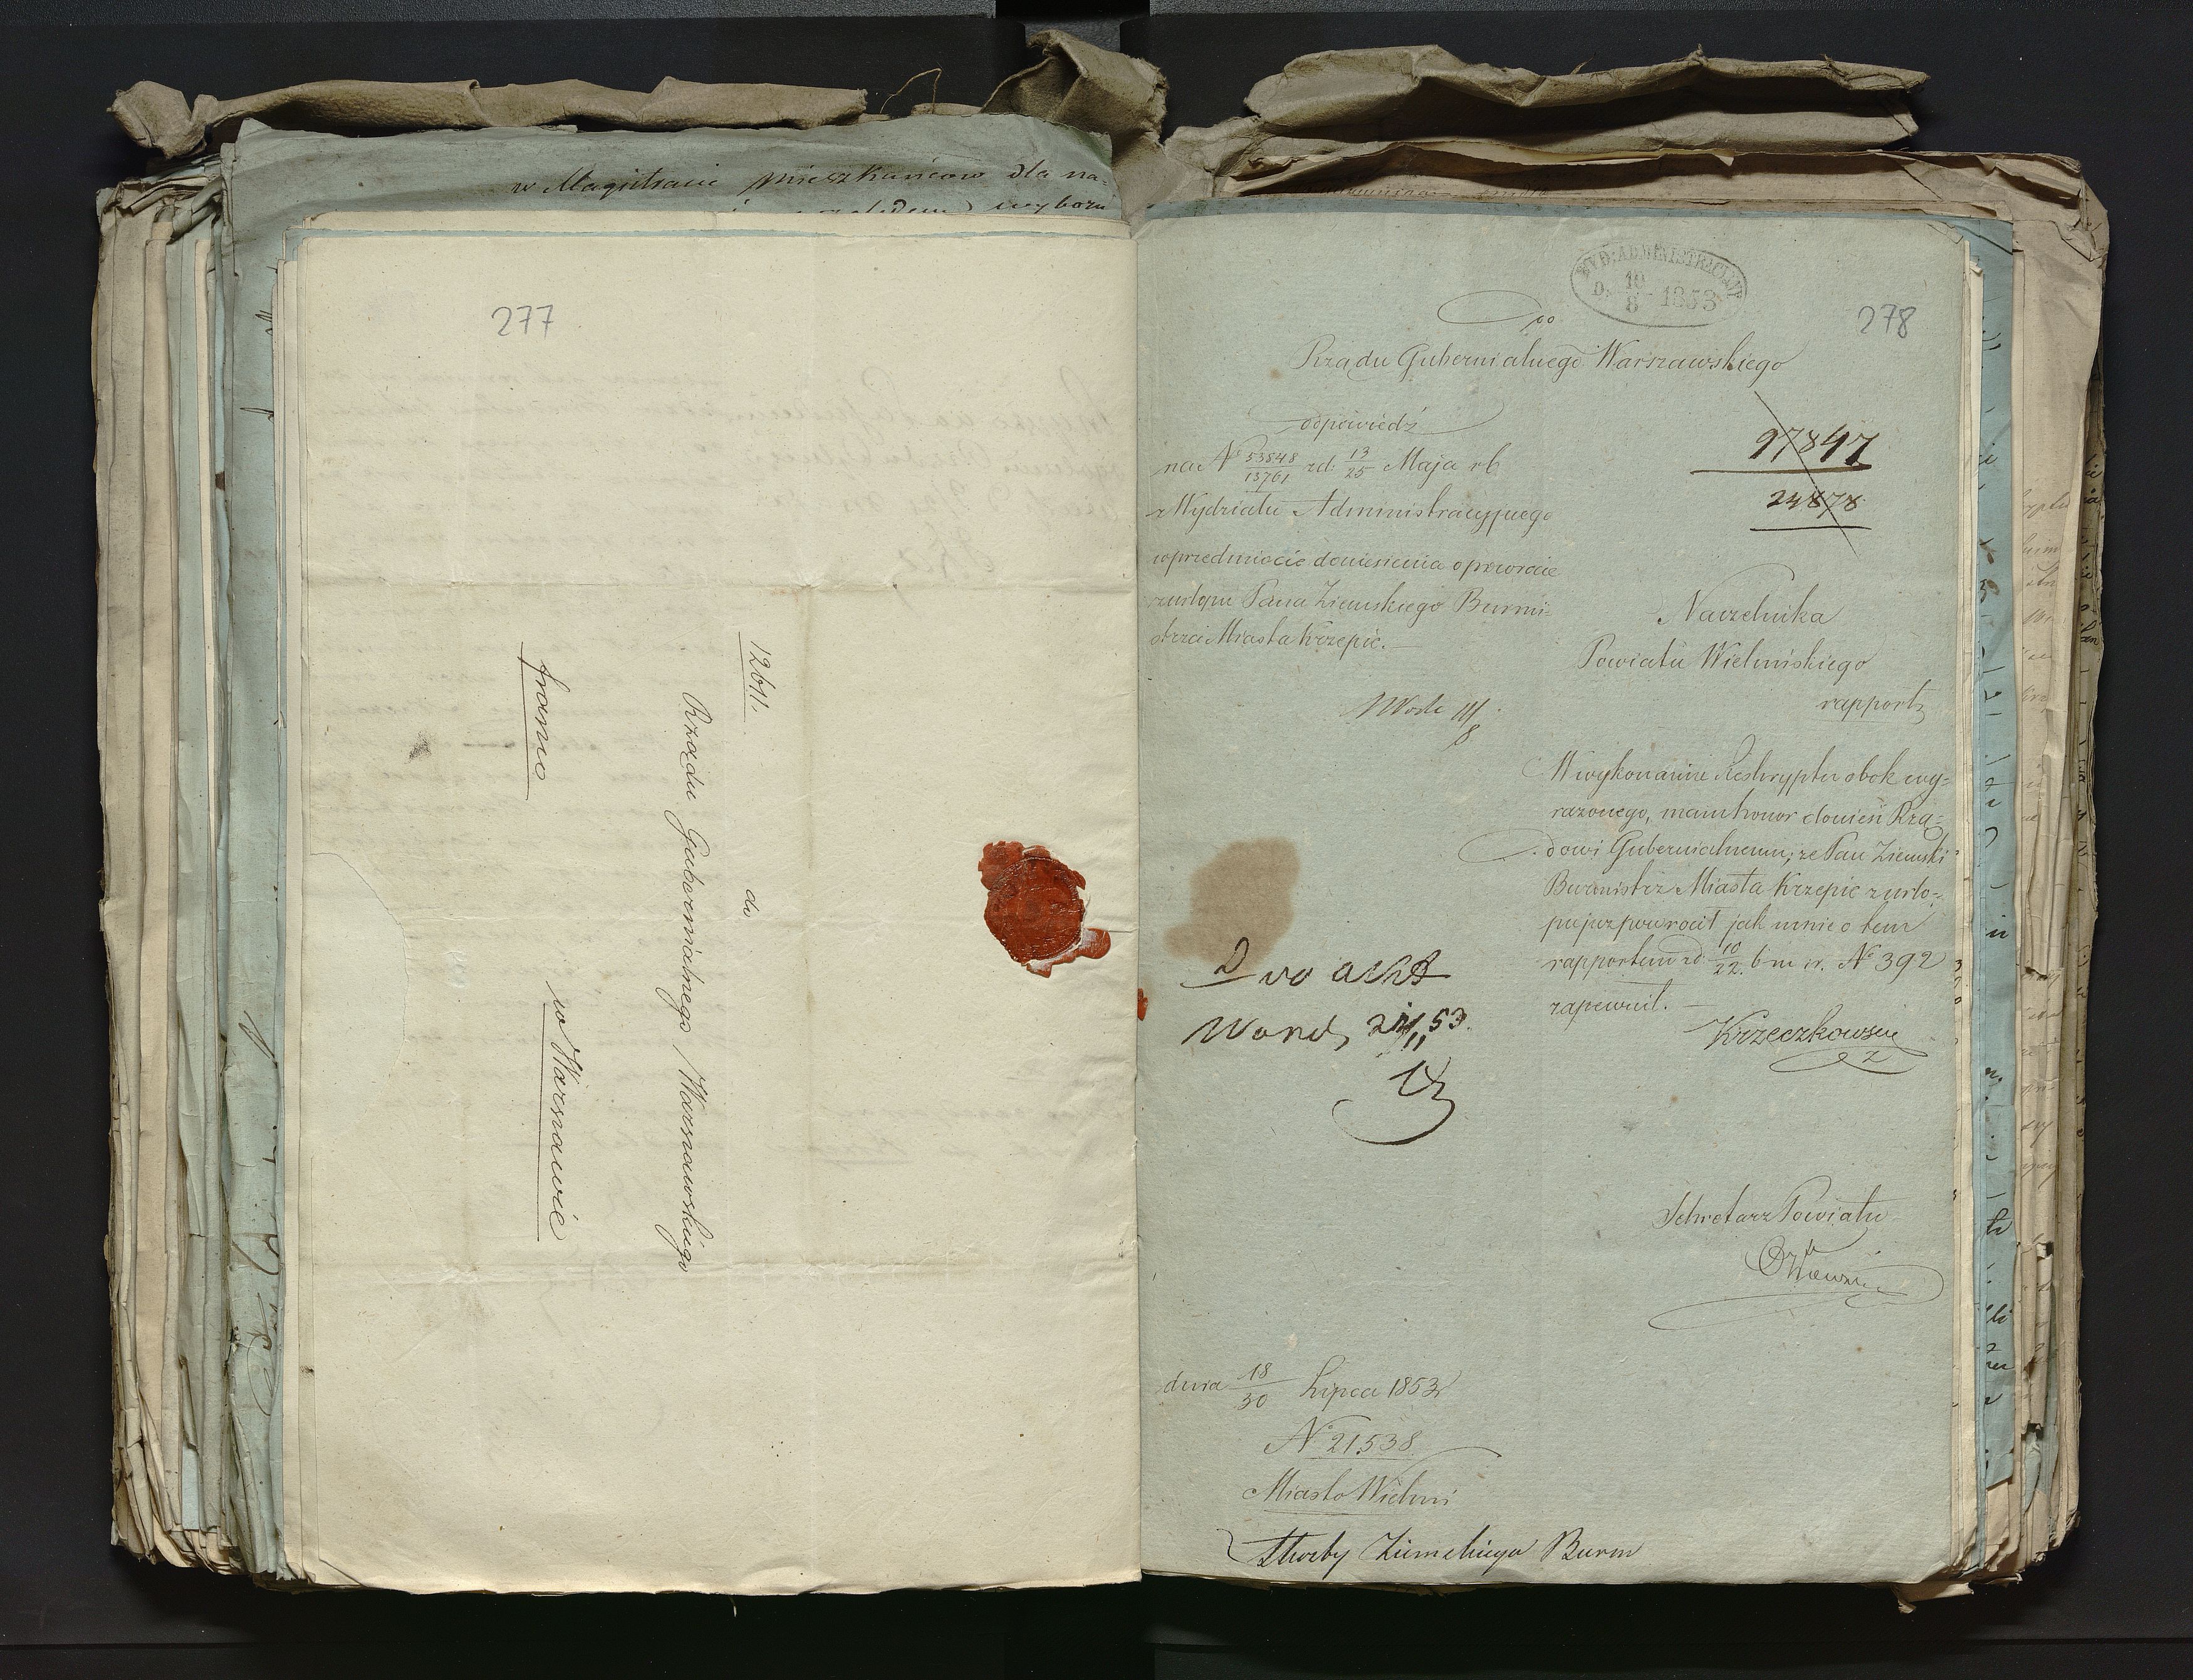 w Magistracie mieszkańców dla na-
wyboru
277
12611.
do
Rządu Gubernialnego Warszawskiego
franco
w Warszawie
WYD: ADMINISTRACYJNY
D. 10/8 1853
278
Do
Rządu Gubernialnego Warszawskiego
odpowiedź
na N 53848/13761 zd 13/25 Maja rb
z Wydziału Administracyjnego
w przedmiocie doniesienia o powrocie
z urlopu Pana Ziemskiego Burmi-
strza Miasta Krzepic. —
97847
24878
Naczelnika
Powiatu Wieluńskiego
rapport
W wykonaniu Reskryptu obok wy-
rażonego, mam honor donieść Rzą-
dowi Gubernialnemu, że Pan Ziemski
Burmistrz Miasta Krzepic z urlo-
pu już powrócił jak mnie o tem
rapportem zd 10/22 b m r. N 392
zapewnił. —
Krzeczkowski
do akt
53
Sekretarz Powiatu
dnia 18/30 Lipca 1853 r
N 21538
Miasto Wieluń
Służby Ziemskiego Burm